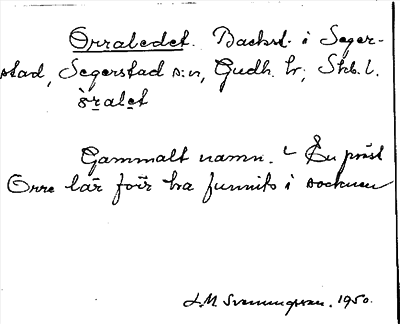 Orraledet. Backst. i Seger-
stad, Segerstad s:n, Gudh. hr; Skb. l.
òraḷet
Gammalt namn. – En präst
Orre lär förr ha funnits i socknen
L.M. Svenungsson. 1950.